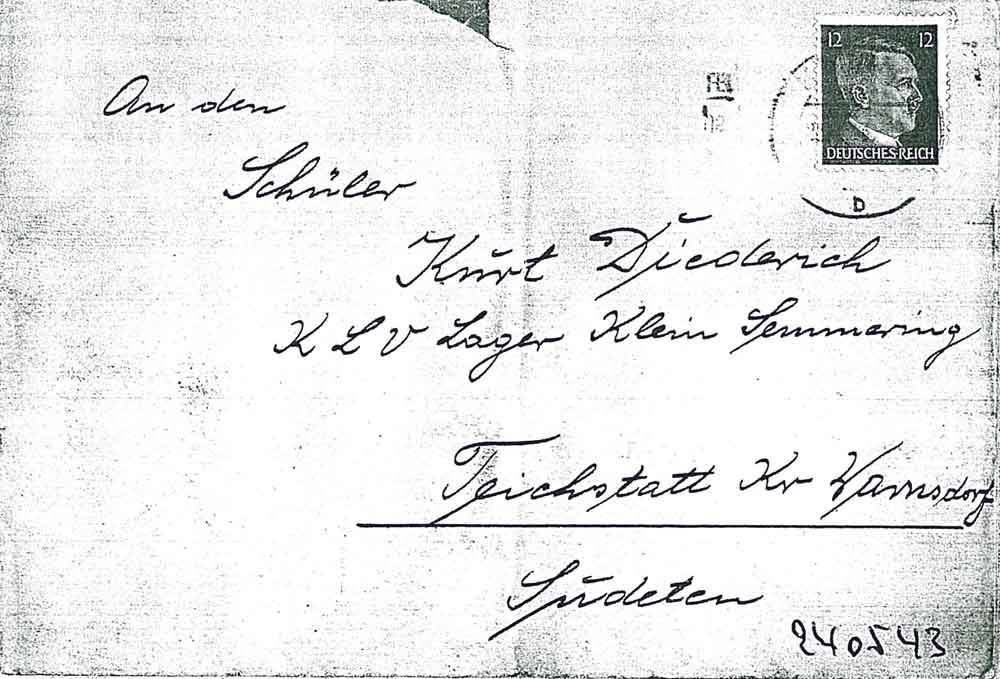 12 12
DEUTSCHES REICH
b
An den
Schüler
Kurt Diederich
K L V Lager Klein Semmering
Teichstatt Kr Warnsdorf
Sudeten
240543